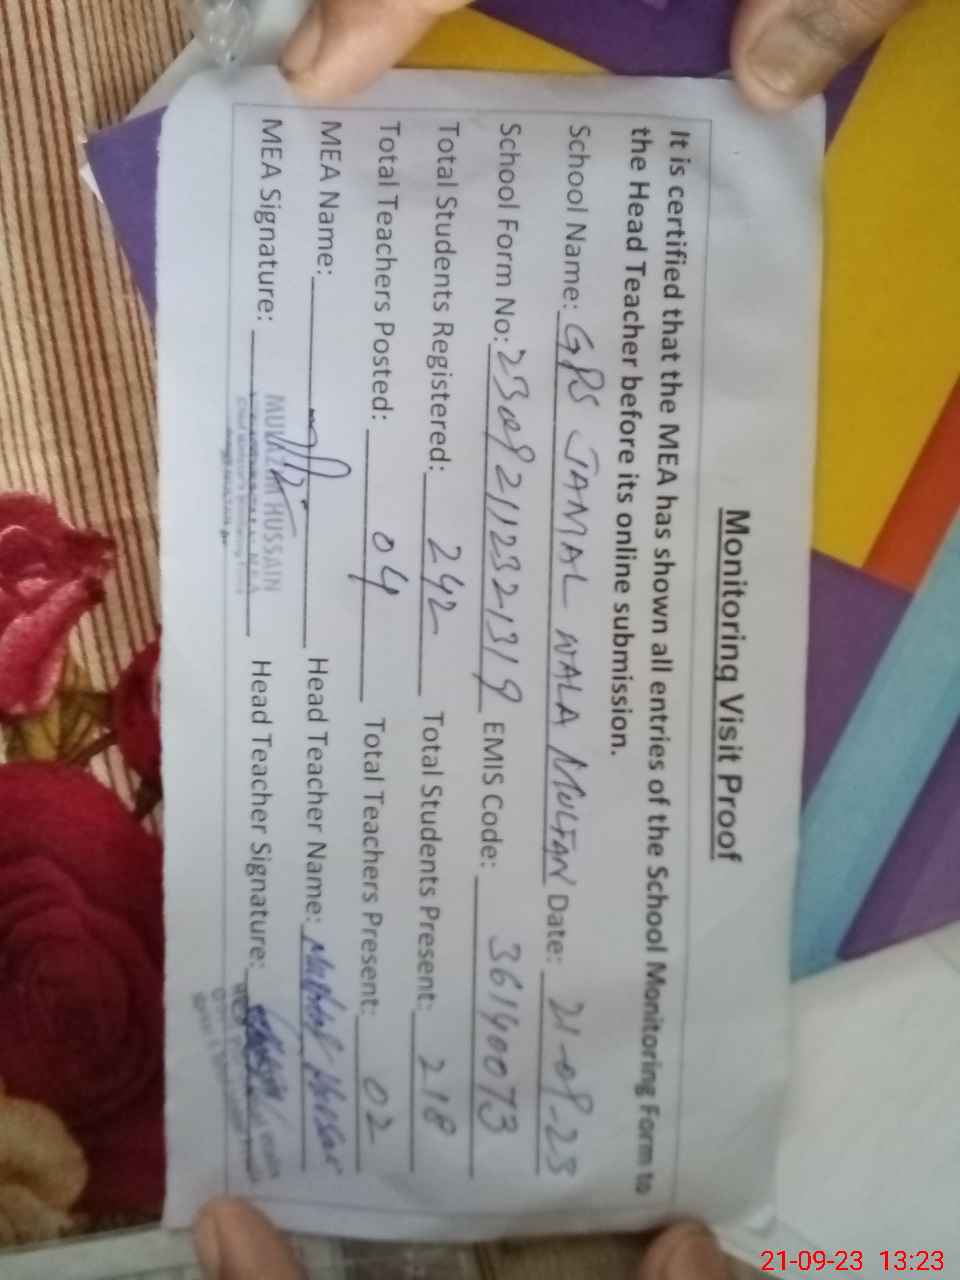 Monitoring Visit Proof
It is certified that the MEA has shown all entries of the School Monitoring Form to
the Head Teacher before its online submission.
School Name: GPS JAMAL WALA MULTAN Date: 21-09-23
School Form No: 23092112321319 EMIS Code: 36140073
Total Students Registered: 242 Total Students Present: 218
Total Teachers Posted: 04 Total Teachers Present: 02
MEA Name: Head Teacher Name:
MEA Signature: HUSSAIN Head Teacher Signature:
21-09-23 13:23